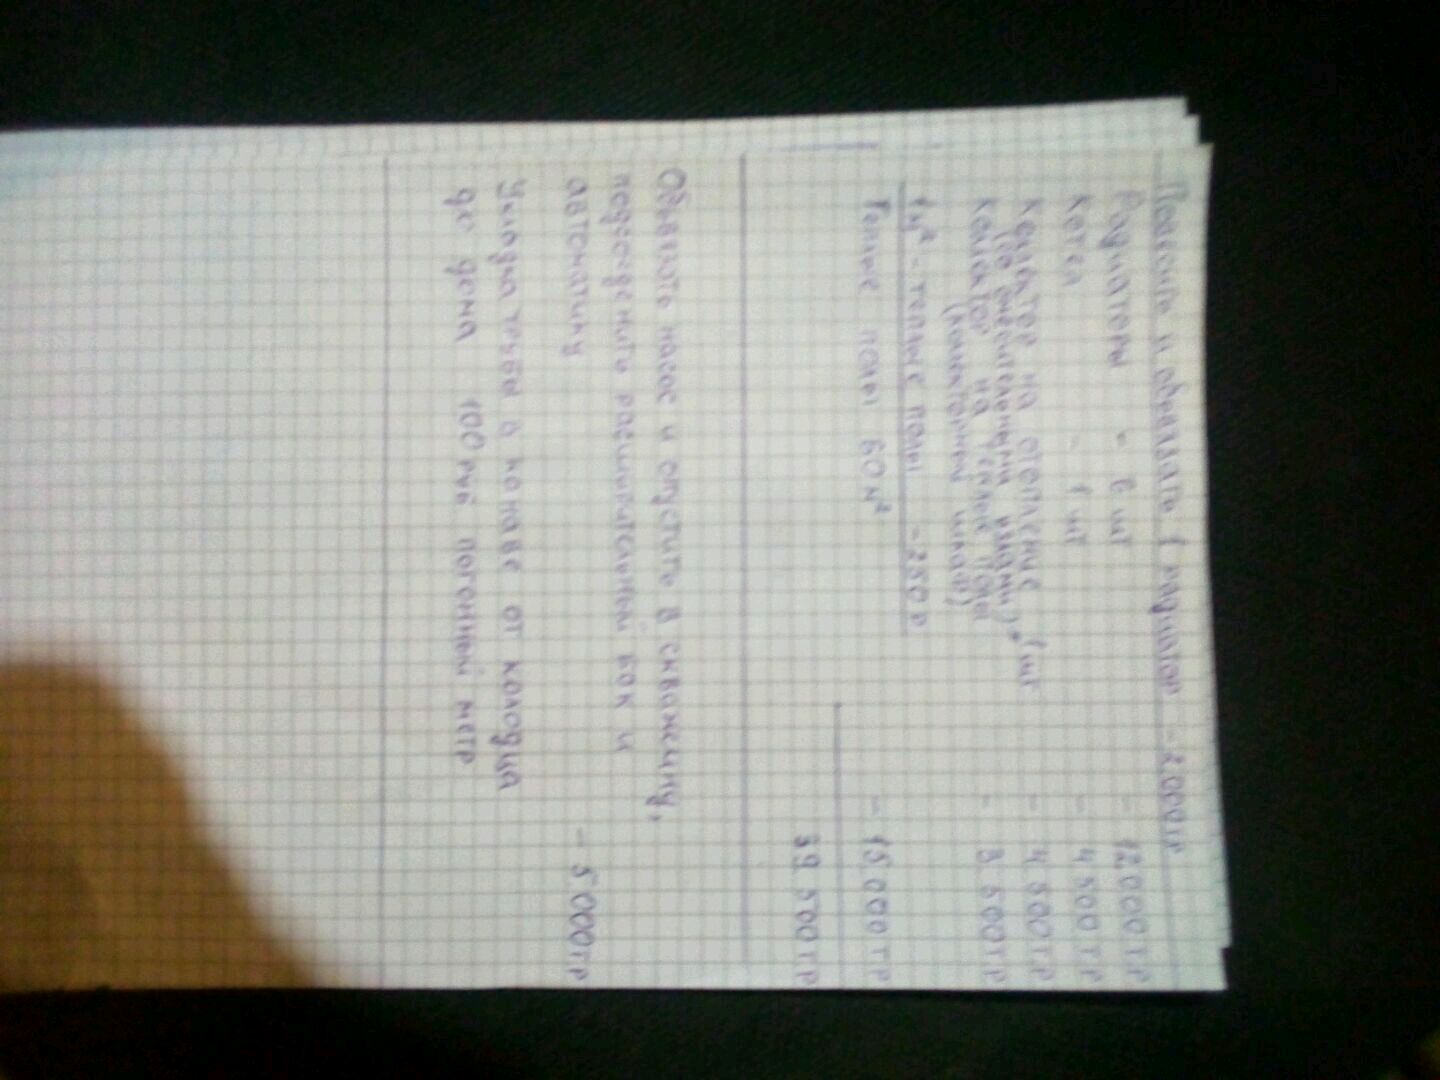 Повесить и обвязать 1 радиатор - 2.000тр
Радиаторы - 6 шт - 12000тр
Котел - 1 шт - 4 500тр
Колектор на отопление 1шт - 4 500тр
(со смесительными узлами)
Коллектор на теплые полы - 3 500тр
(коллекторный шкаф)
1м² - теплые полы - 250 р
Теплые полы 60м² - 15 000тр
39 500тр
Обвязать насос и опустить в скважину,
подсоеденить расширительный бак и
автоматику - 5000тр
Укладка трубы в канаве от колодца
до дома 100 руб погонный метр